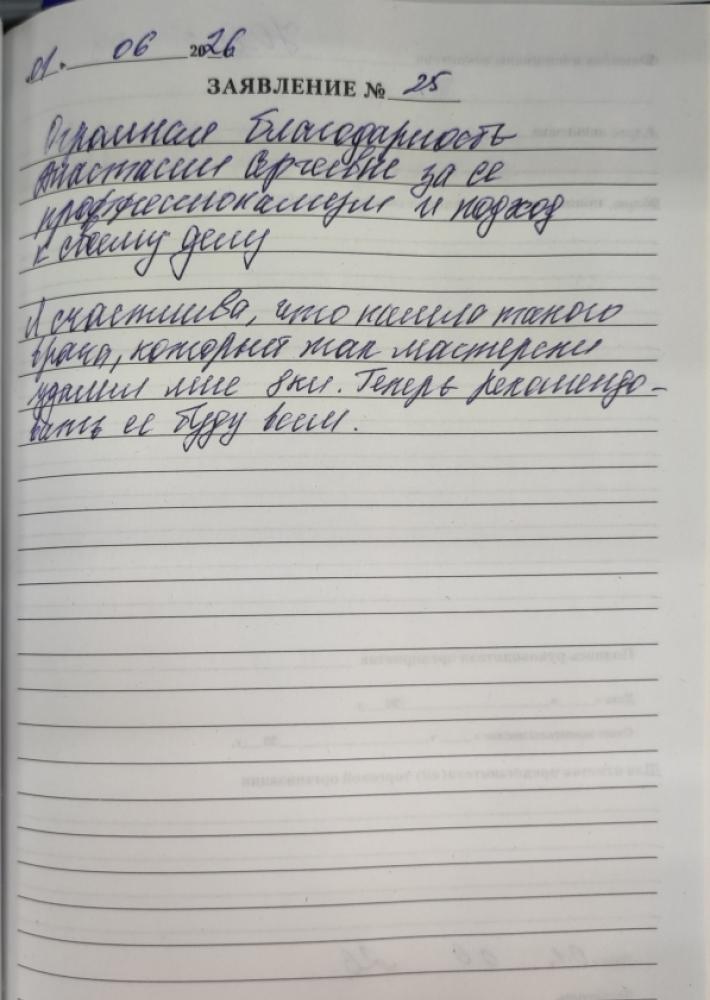 01. 06 2026
ЗАЯВЛЕНИЕ № 25
Огромная благодарность
Анастасии Сергеевне за ее
профессионализм и подход
к своему делу
Я счастлива, что нашла такого
врача, который так мастерски
удалил мне вки. Теперь рекомендо-
вать ее буду всем.